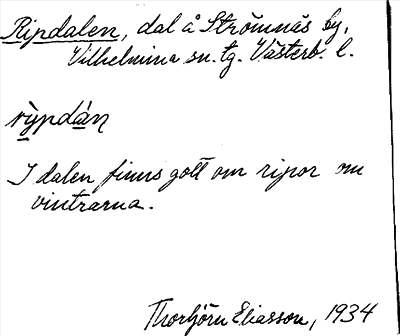 Ripdalen, dal å Strömnäs by,
Vilhelmina sn. tg. Västerb. l.
rỳpdán
I dalen finns gott om ripor om
vintrarna.
Thorbjörn Eliasson, 1934